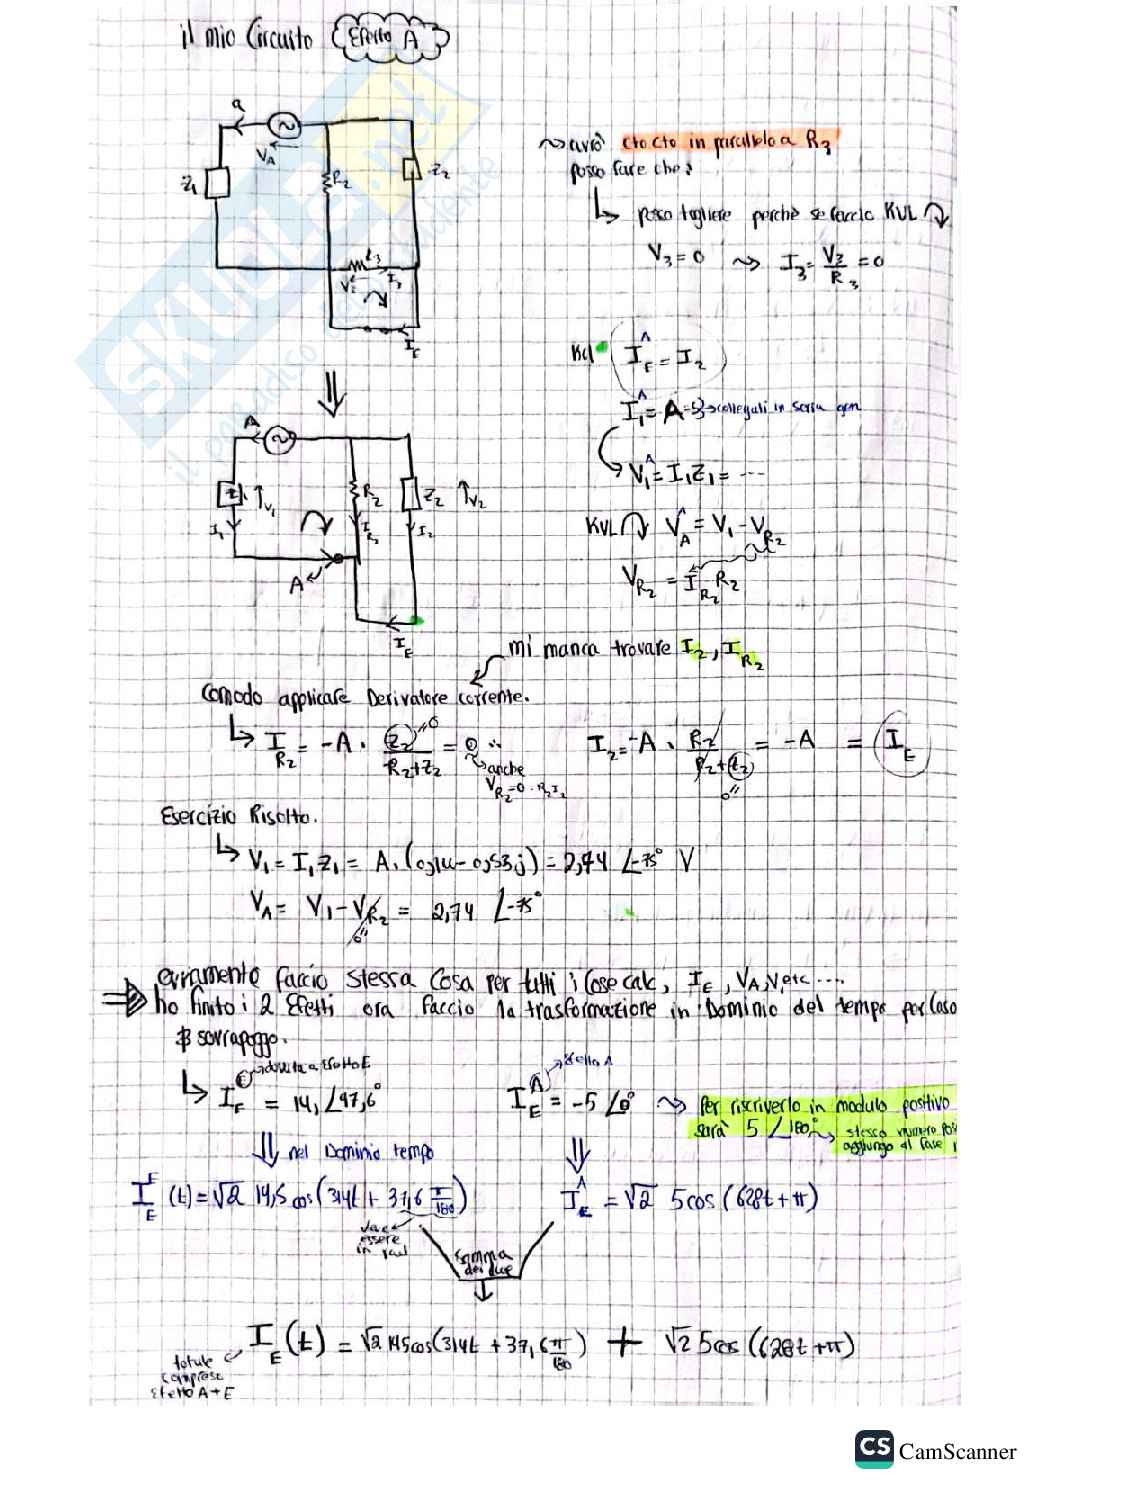 il mio Circuito Effetto A
a
VA
Z1
R2
Z2
I3
IE
~> avrò cto cto in parallelo a R3
posso fare che:
↳ posso togliere perchè se faccio KVL
V3 = 0 ~> I3 = V3/R3 = 0
Kcl IE^A = I2
I1^A = A = 5 collegati in serie gen
V1^A = I1 Z1 = ...
KVL VA^A = V1 - VR2
VR2 = IR2 R2
A
V1
I1
R2
IR2
Z2
V2
I2
A
IE
mi manca trovare I2, IR2
Comodo applicare Derivatore corrente.
↳ IR2 = -A · Z2/(R2+Z2) = 0
anche
I2 = -A · R2/(R2+Z2) = -A = IE
Esercizio Risolto.
↳ V1 = I1 Z1 = A · (0,14 - 0,53j) = 2,74 ∠-75° V
VA = V1 - VR2 = 2,74 ∠-75°
ovviamente faccio stessa cosa per tutti i case calc, IE, VA, V, etc ....
⇒ ho finito i 2 Effetti ora faccio la trasformazione in Dominio del tempo per caso
sovrappogo.
dovuta a Effetto E
Effetto A
↳ IE^E = 14, ∠97,6°
IE^A = -5 ∠0° ~> Per riscriverlo in modulo positivo
sarà 5 ∠180° stesso numero
aggiungo di fase
nel Dominio tempo
IE^E (t) = √2 14,5 cos(314t + 37,6 π/180)
IE^A = √2 5 cos (628t + π)
deve
essere
in rad
somma
dei due
IE (t) = √2 14,5 cos(314t + 37,6 π/180) + √2 5 cos (628t + π)
totale
compreso
Effetto A + E
SKUOLA.net
CS CamScanner